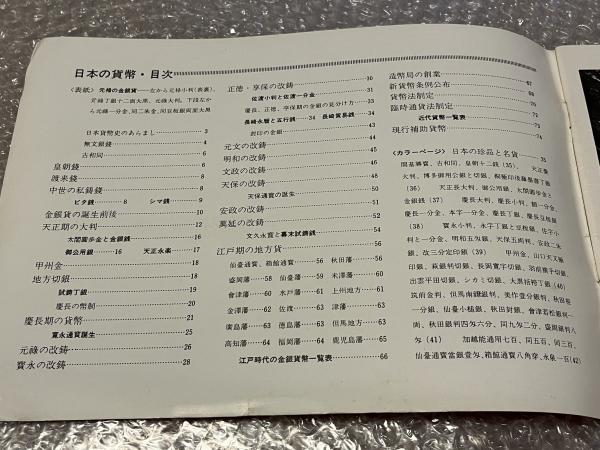 日本の貨幣・目次
〈表紙〉元禄の金銀貨——左から元禄小判(表裏)、
元禄丁銀十二面大黒、元禄大判、下段左か
ら元禄一分金、同二朱金、同豆板銀両面大黒
日本貨幣史のあらまし……3
無文銀銭……4
古和同……6
皇朝銭……6
渡来銭……8
中世の私鋳銭……8
ビタ銭……8 シマ銭……9
金銀貨の誕生前後……10
天正期の大判……12
太閤圓歩金と金銀銭……16
御公用銀……16 天正永楽……17
甲州金……18
地方切銀……18
試鋳丁銀……19
慶長の幣制……20
慶長期の貨幣……21
寛永通寳誕生……25
元禄の改鋳……26
寳永の改鋳……28
正徳・享保の改鋳……30
佐渡小判と佐渡一分金……31
慶長、正徳、享保期の金銀の見分け方……33
長崎永暦と五行銭……34 長崎貿易銭……34
刻印の金銀……43
元文の改鋳……44
明和の改鋳……45
文政の改鋳……46
天保の改鋳……48
天保通寳の誕生……50
安政の改鋳……51
萬延の改鋳……52
文久永寳と幕末試鋳銭……54
江戸期の地方貨……56
仙臺通寳、箱館通寳……56 秋田藩……56
盛岡藩……58 仙臺藩……59 米澤藩……60
會津藩……60 水戸藩……61 上州地方……61
金澤藩……62 佐渡……63 津藩……63
廣島藩……63 徳島藩……63 但馬地方……63
高知藩……64 福岡藩……64 鹿児島藩……65
江戸時代の金銀貨幣一覧表……66
造幣局の創業……67
新貨幣条例公布……68
貨幣法制定……70
臨時通貨法制定……72
近代貨幣一覧表
現行補助貨幣……74
〈カラーページ〉日本の珍品と名貨……35
開基勝寳、古和同、皇朝十二銭(35)、天正菱
大判、博多御用公銀と切銀、桐極印後藤墨書丁銀
(36) 天正長大判、御公用銀、太閤圓歩金と
金銀銭(37) 慶長大判、慶長小判、額一分金、
慶長一分金、本字一分金、慶長丁銀、慶長豆板銀
(38) 寳永小判、永字丁銀と豆板銀、佐字小
判と一分金、明和五匁銀、天保五両判、安政二朱
銀、改三分定印銀(39) 甲州金、山口天又丁
印銀、萩銀判切銀、長岡寛字切銀、羽前雁千切銀、
出雲平田切銀、シカミ切銀、大黒括袴丁銀(40)
筑前金判、但馬南鐐銀判、美作壹分銀判、秋田壹
一分銀、仙臺小槌銀、秋田封銀、會津若松銀判一
両、秋田銀判四匁六分、同九匁二分、盛岡銀判八
匁(41) 加越能通用七百、同五百、同三百、
仙臺通寳當銀壹匁、箱館通寳八角穿、水泉一百(42)